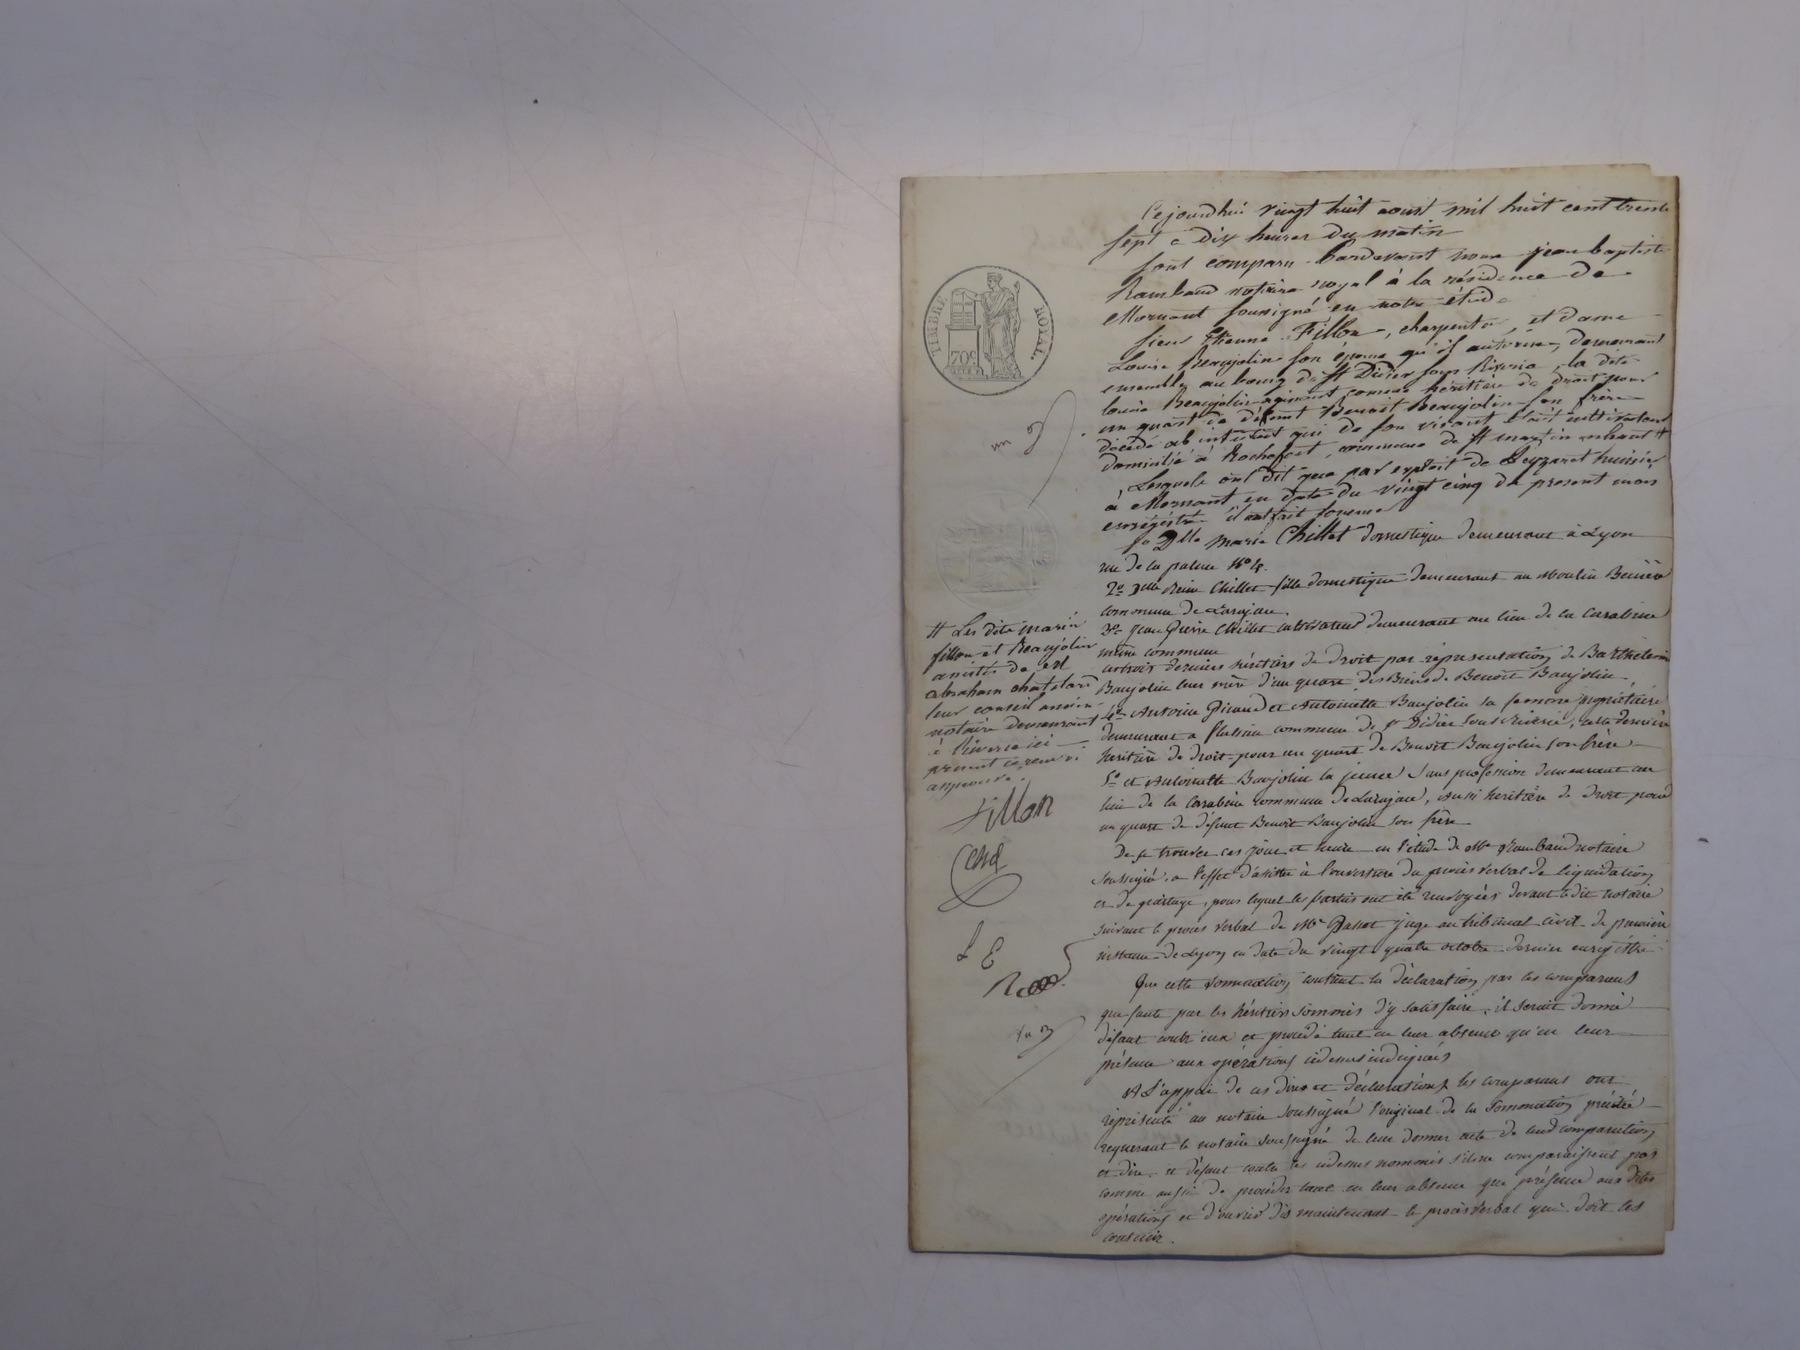 Cejourdhui vingt huit aoust mil huit cent trente
sept a dix heures du matin
sont comparu pardevant nous jean baptiste
Rambaud notaire royal à la résidence de
Mornant soussigné en notre étude
sieur Etienne Fillon, charpentier, et dame
Louise Beaujolin son épouse qu'il autorise, demeurant
ensemble au bourg de St Didier sous Riverie, la dite
louise Beaujolin agissant comme héritière de droit pour
un quart de défunt Benoit Beaujolin son frère
décédé ab intestat qui de son vivant était cultivateur
domicilié à Rochefort, commune de St martin enhaut #
Lesquels ont dit que par exploit de huissier
à Mornant en date du vingt cinq du present mois
enregistré il ont fait sommer
1o Dlle marie Chillet domestique demeurant à Lyon
rue de la palme No 4.
2o Dlle Reine Chillet fille domestique demeurant au Moulin
commune de Larajau.
3o Jean Pierre Chillet cultivateur demeurant au lieu de la Carabine
même commune
ces trois derniers héritiers de droit par représentation de Barthelemie
Baujolin leur mère d'un quart des Biens de Benoit Baujolin
4o Antoine Picaud et Antoinette Baujolin sa femme propriétaire
demeurant a commune de St Didier sous Riverie, cette dernière
héritière de droit pour un quart de Benoit Baujolin son frère
5o et Antoinette Baujolin la jeune sans profession demeurant au
lieu de la Carabine commune de Larajau, aussi héritière de droit pour
un quart de défunt Benoit Baujolin son frère
De se trouver ces jour et heure en l'étude de Me Rambaud notaire
soussigné à l'effet d'assister à l'ouverture du procès verbal de liquidation
et de partage, pour lequel les parties ont été renvoyées devant le dit notaire
suivant le procès verbal de Mr Passet juge au tribunal civil de première
instance de Lyon en date du vingt quatre octobre dernier enregistré
Que cette sommation contient la déclaration par les comparants
que faute par les héritiers sommés d'y satisfaire, il serait donné
défaut contr'eux et procédé tant en leur absence qu'en leur
présence aux opérations cidessus indiquées
A l'appui de ces dires et déclarations les comparants ont
représenté au notaire soussigné l'original de la sommation précitée
requerant le notaire soussigné de leur donner acte de leur comparution
et dire, et défaut contre les cidessus nommés s'ils ne comparaissent pas
comme aussi de procéder tant en leur absence que présence aux dites
opérations et d'ouvrir dès maintenant le procès verbal qui doit les
contenir.
TIMBRE ROYAL.
70c
# Les dits mariés
fillon et Beaujolin
assistés de
abraham chatelard
leur conseil ancien
notaire demeurant
à Riverie ici
present
approuvé.
Fillon
Chd
L E
R